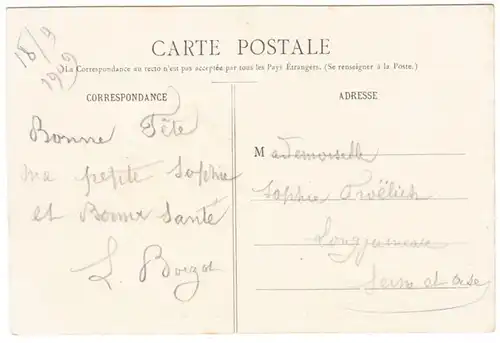 18/9
1909
CARTE POSTALE
La Correspondance au recto n'est pas acceptée par tous les Pays Étrangers. (Se renseigner à la Poste.)
CORRESPONDANCE
Bonne Fête
ma petite Sophie
et Bonne Santé
ADRESSE
Mademoiselle
Sophie Froëlich
Longjumeau
Seine et Oise